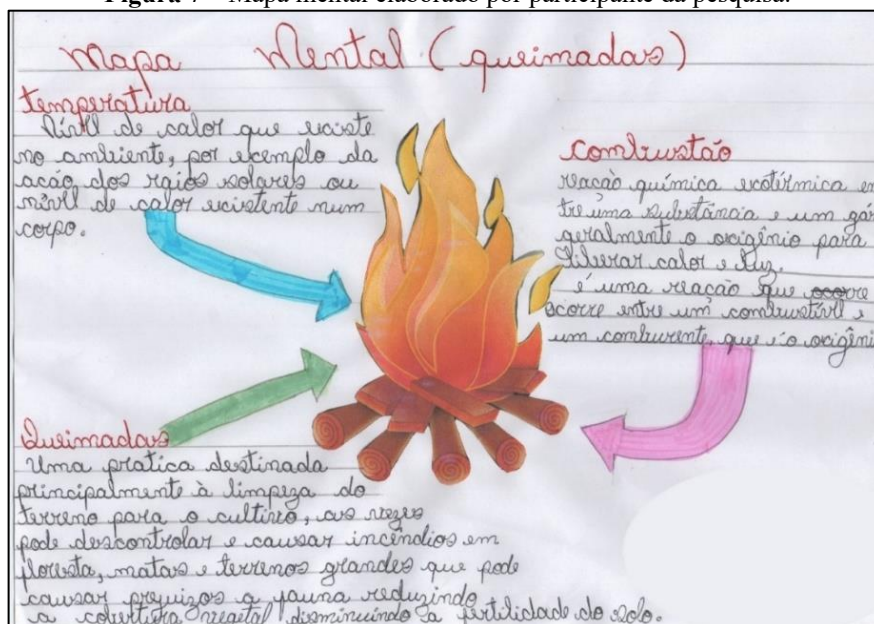 Figura 7 – Mapa mental elaborado por participante da pesquisa.
Mapa Mental (queimadas)
temperatura
Nível de calor que existe
no ambiente, por exemplo da
acão dos raios solares ou
nível de calor existente num
corpo.
Combustão
reacão química exotérmica en
tre uma substância e um gás
geralmente o oxigênio para
liberar calor e luz.
é uma reação que ocorre
ocorre entre um combustível e
um comburente, que é o oxigêni
Queimadas
Uma pratica destinada
principalmente à limpeza do
terreno para o cultivo, as vezes
pode descontrolar e causar incêndios em
floresta, matas e terrenos grandes que pode
causar prejuizos a fauna reduzindo
a cobertura vegetal disminuindo a fertilidade do solo.